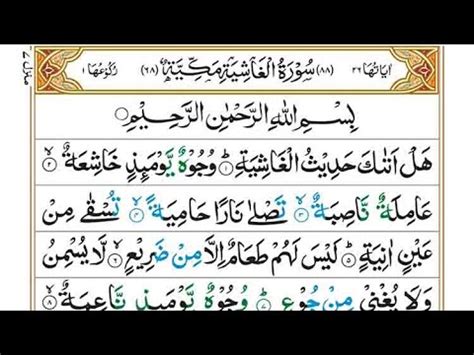 اٰیَاتُهَا ٢٦ (٨٨) سُوْرَةُ الْغَاشِيَةِ مَكِّيَّةٌ (٦٨) رُكُوْعُهَا ١
بِسْمِ اللهِ الرَّحْمٰنِ الرَّحِيْمِ
هَلْ اَتٰىكَ حَدِيْثُ الْغَاشِيَةِ ؕ١ وُجُوْهٌ يَّوْمَىِٕذٍ خَاشِعَةٌ ۙ٢
عَامِلَةٌ نَّاصِبَةٌ ۙ٣ تَصْلٰى نَارًا حَامِيَةً ۙ٤ تُسْقٰى مِنْ
عَيْنٍ اٰنِيَةٍ ؕ٥ لَيْسَ لَهُمْ طَعَامٌ اِلَّا مِنْ ضَرِيْعٍ ۙ٦ لَّا يُسْمِنُ
وَلَا يُغْنِيْ مِنْ جُوْعٍ ؕ٧ وُجُوْهٌ يَّوْمَىِٕذٍ نَّاعِمَةٌ ۙ٨
منزل ٧